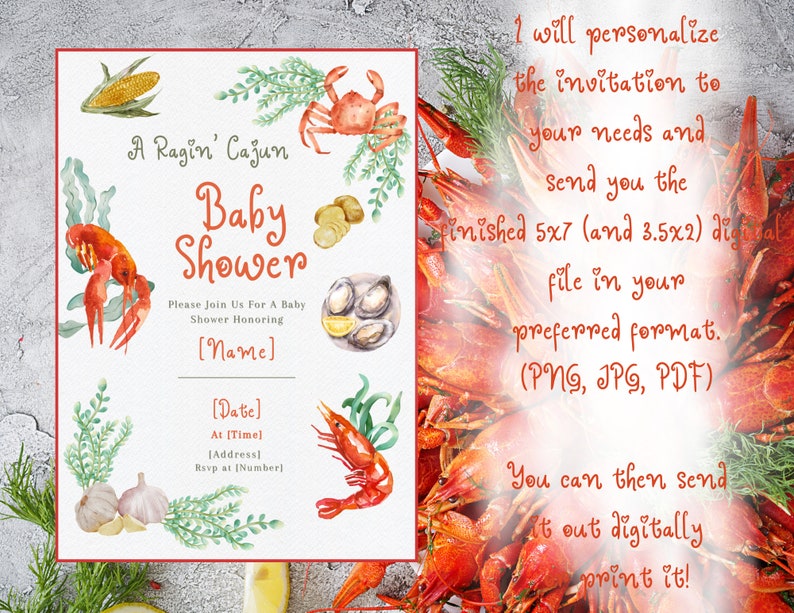 A Ragin' Cajun
Baby
Shower
Please Join Us For A Baby
Shower Honoring
[Name]
[Date]
At [Time]
[Address]
Rsvp at [Number]
I will personalize
the invitation to
your needs and
send you the
finished 5x7 (and 3.5x2) digital
file in your
preferred format.
(PNG, JPG, PDF)
You can then send
it out digitally
or print it!